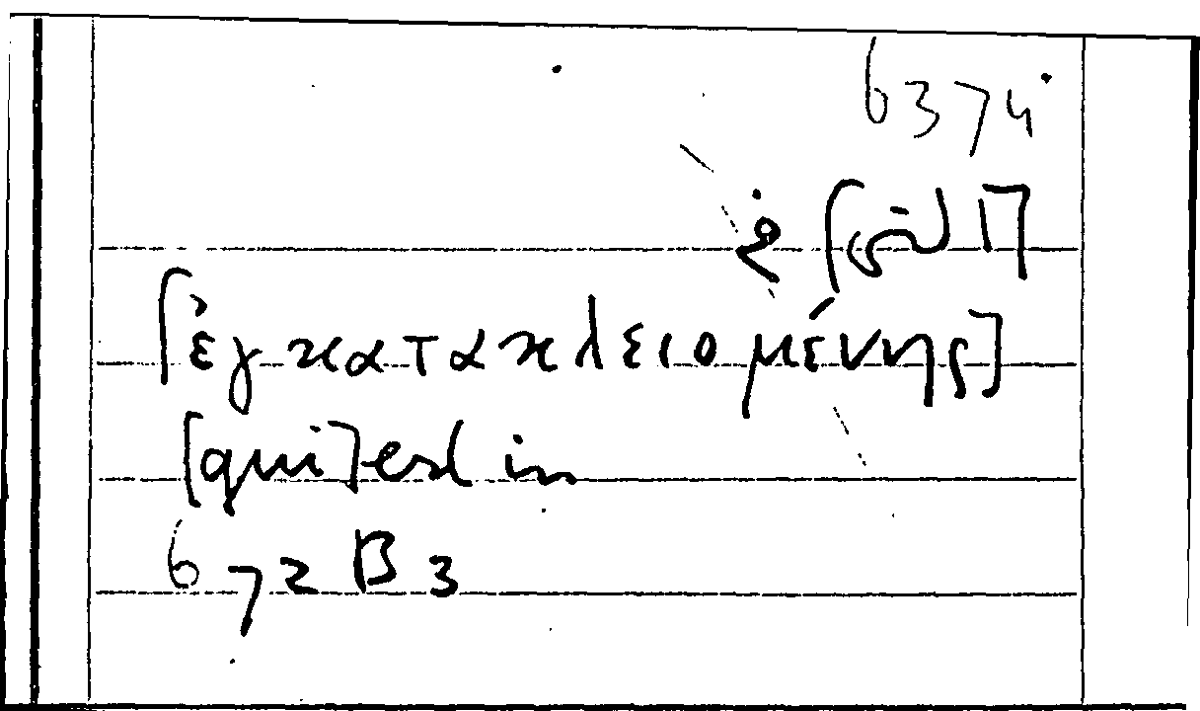 6374
[ἐγκατακλειομένης]
[qui] est in
672 B 3